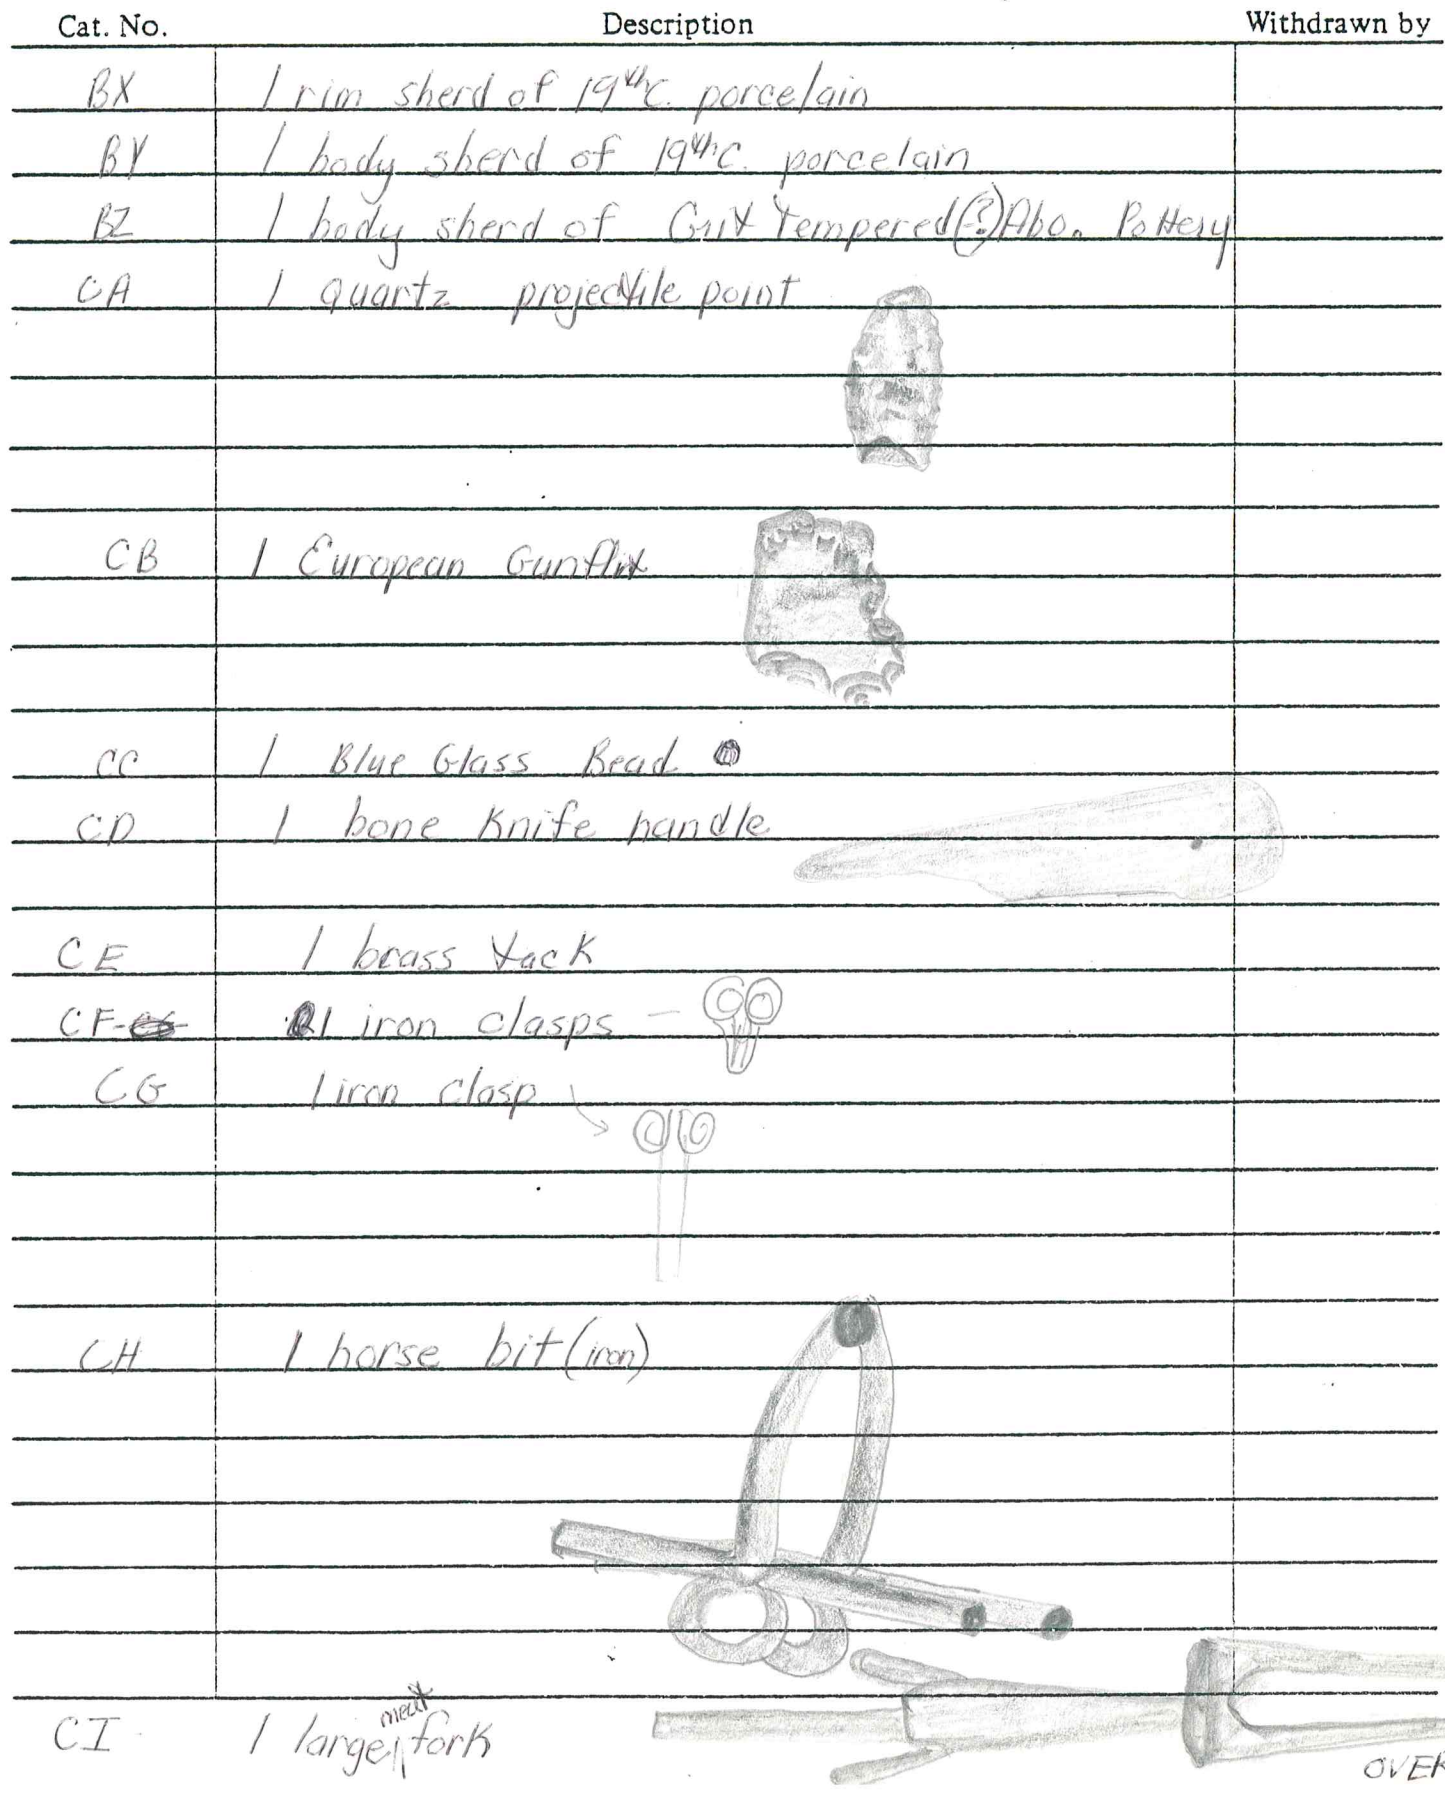 Cat. No. Description Withdrawn by
BX 1 rim sherd of 19th C. porcelain
BY 1 body sherd of 19th C. porcelain
BZ 1 body sherd of Grit Tempered (?) Abo. Pottery
CA 1 quartz projectile point
CB 1 European Gunflint
CC 1 Blue Glass Bead
CD 1 bone Knife handle
CE 1 brass tack
CF- 1 iron clasps -
CG 1 iron clasp
CH 1 horse bit (iron)
CI 1 large meat fork
OVER